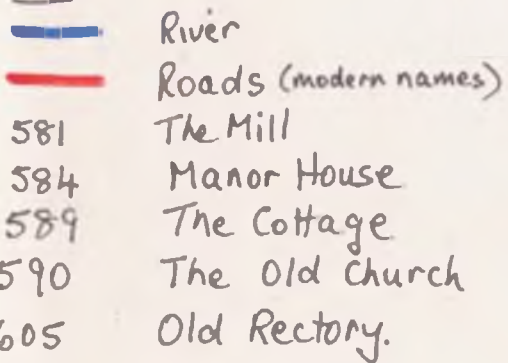 River
Roads (modern names)
581 The Mill
584 Manor House
589 The Cottage
590 The Old Church
605 Old Rectory.